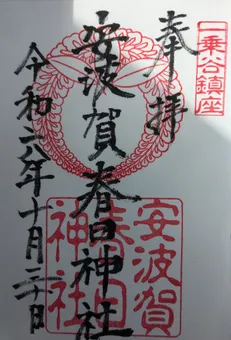 一乗谷鎮座
奉拝
安波賀春日神社
令和六年十月二十日
安波賀
春日
神社